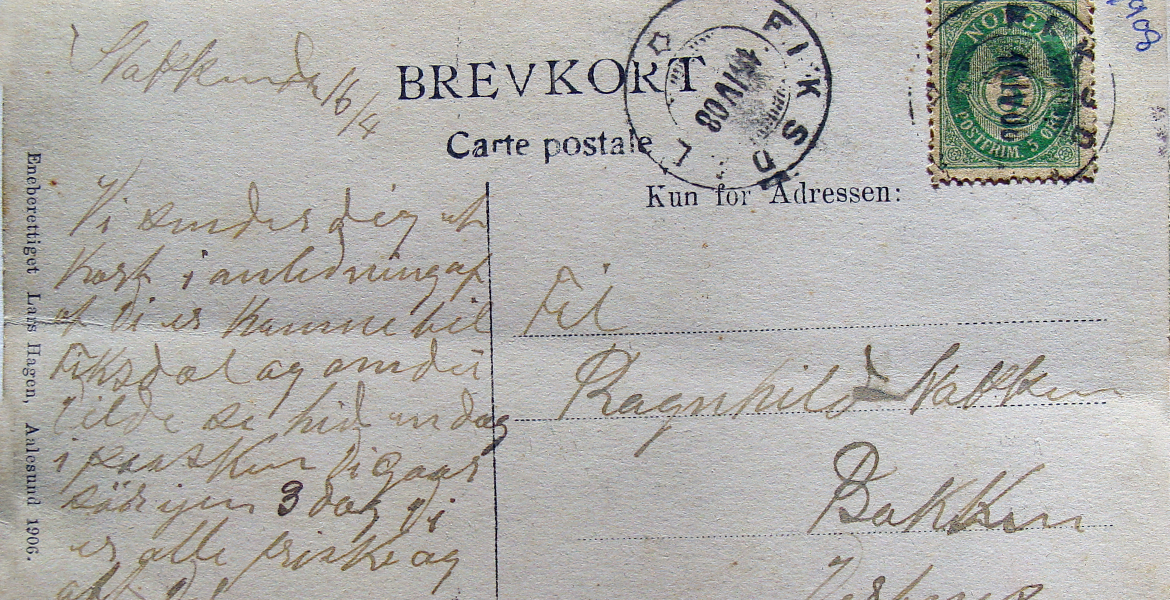 1908
16/4
BREVKORT
Carte postale
FIKSDAL
IV 08
NORGE
POSTFRIM. 5 ØRE
FIKSDAL
IV 08
Kun for Adressen:
Eneberettiget Lars Hagen, Aalesund 1906.
Vi sender dig et
Kort i anledning af
at Vi er komme til
Fiksdal og om du
vilde se hid en dag
i paasken Vi gaar
igen 3 dag Vi
er alle friske og
Til
Ragnhild
Bakken